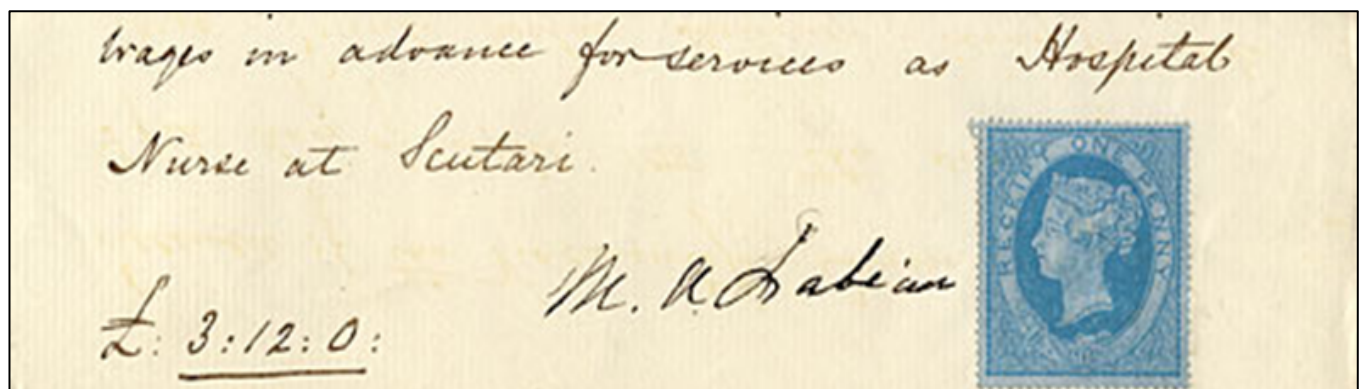 wages in advance for services as Hospital
Nurse at Scutari.
M. A. Fabian
RECEIPT ONE PENNY
£: 3:12:0: